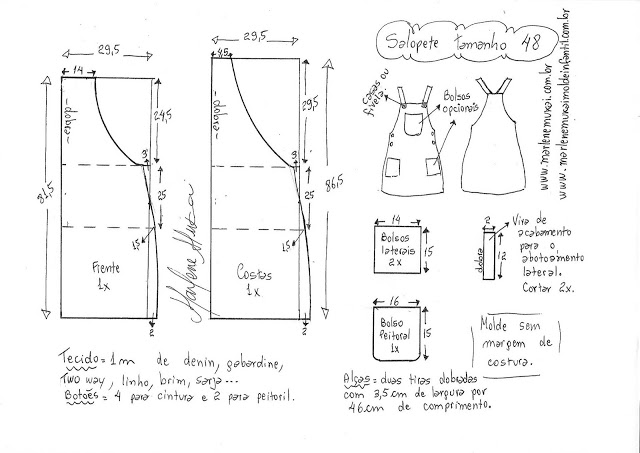 Salopete tamanho 48
www.marlenemukai.com.br
www.marlenemukaimoldeinfantil.com.br
29,5
14
-dobra-
24,5
81,5
3
25
1,5
Frente
1x
2
Marlene Mukai
29,5
4,5
-dobra-
29,5
86,5
3
25
1,5
Costas
1x
2
Casas ou
fivela
Bolsos
opcionais
14
Bolsos
laterais
2x
15
2
dobra
12
Vira de
acabamento
para o
abotoamento
lateral.
Cortar 2x.
16
Bolso
Peitoral
1x
15
Molde sem
margem de
costura.
Tecido = 1m de denin, gabardine,
Two way, linho, brim, sarja...
Botões = 4 para cintura e 2 para peitoril.
Alças = duas tiras dobradas
com 3,5cm de largura por
46cm de comprimento.